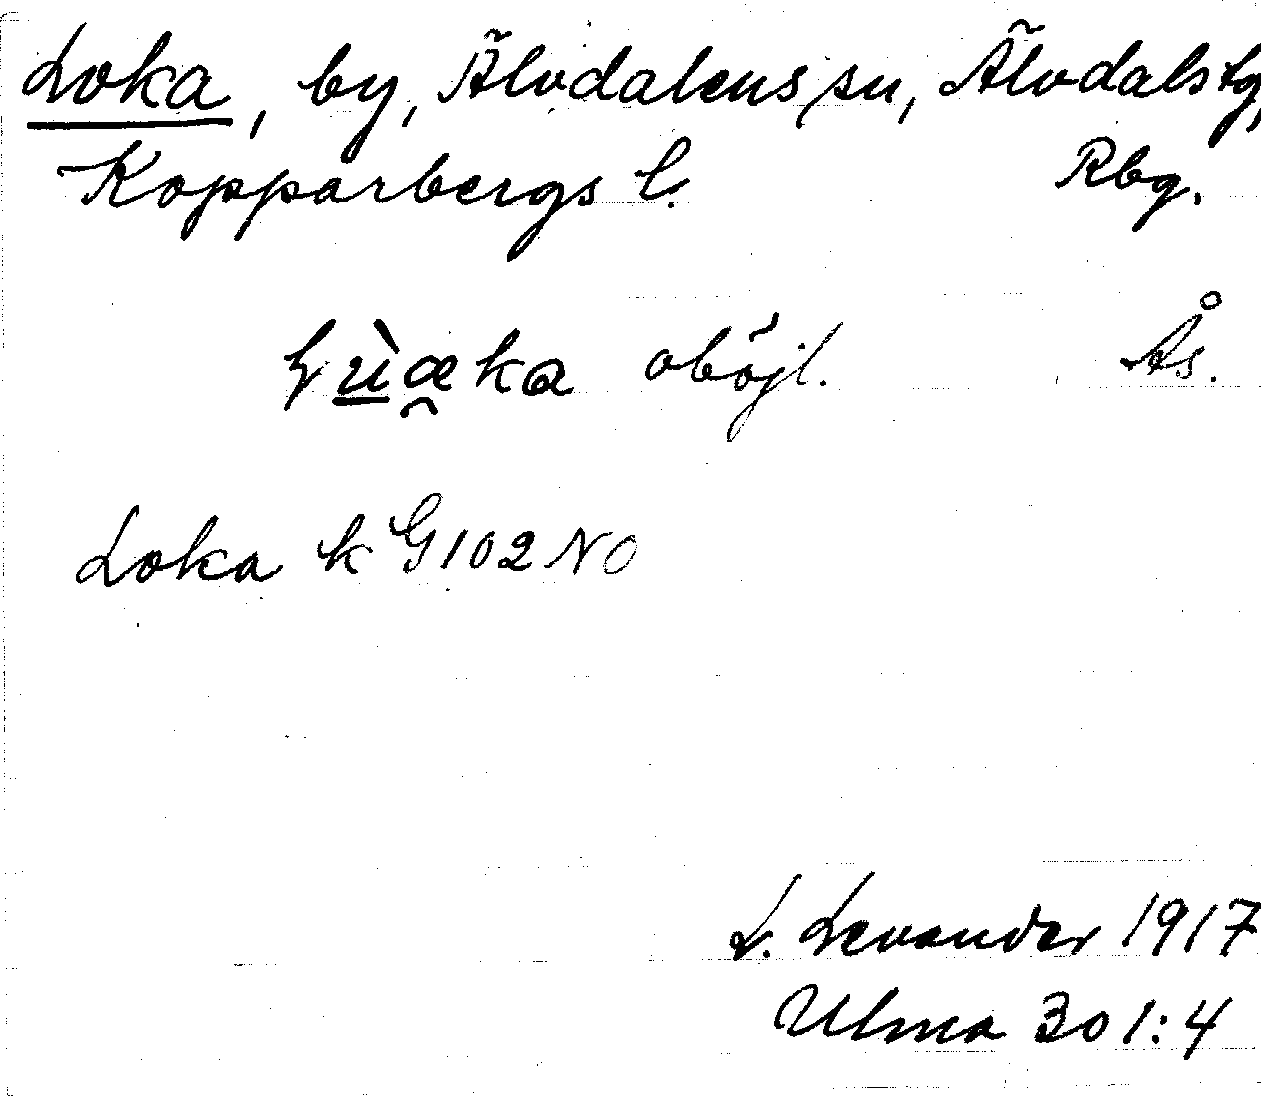 Loka, by, Älvdalens sn, Älvdals tg,
Kopparbergs l. Rbg.
oböjl. Ås.
Loka k G102NO
L. Levander 1917
Ulma 301:4